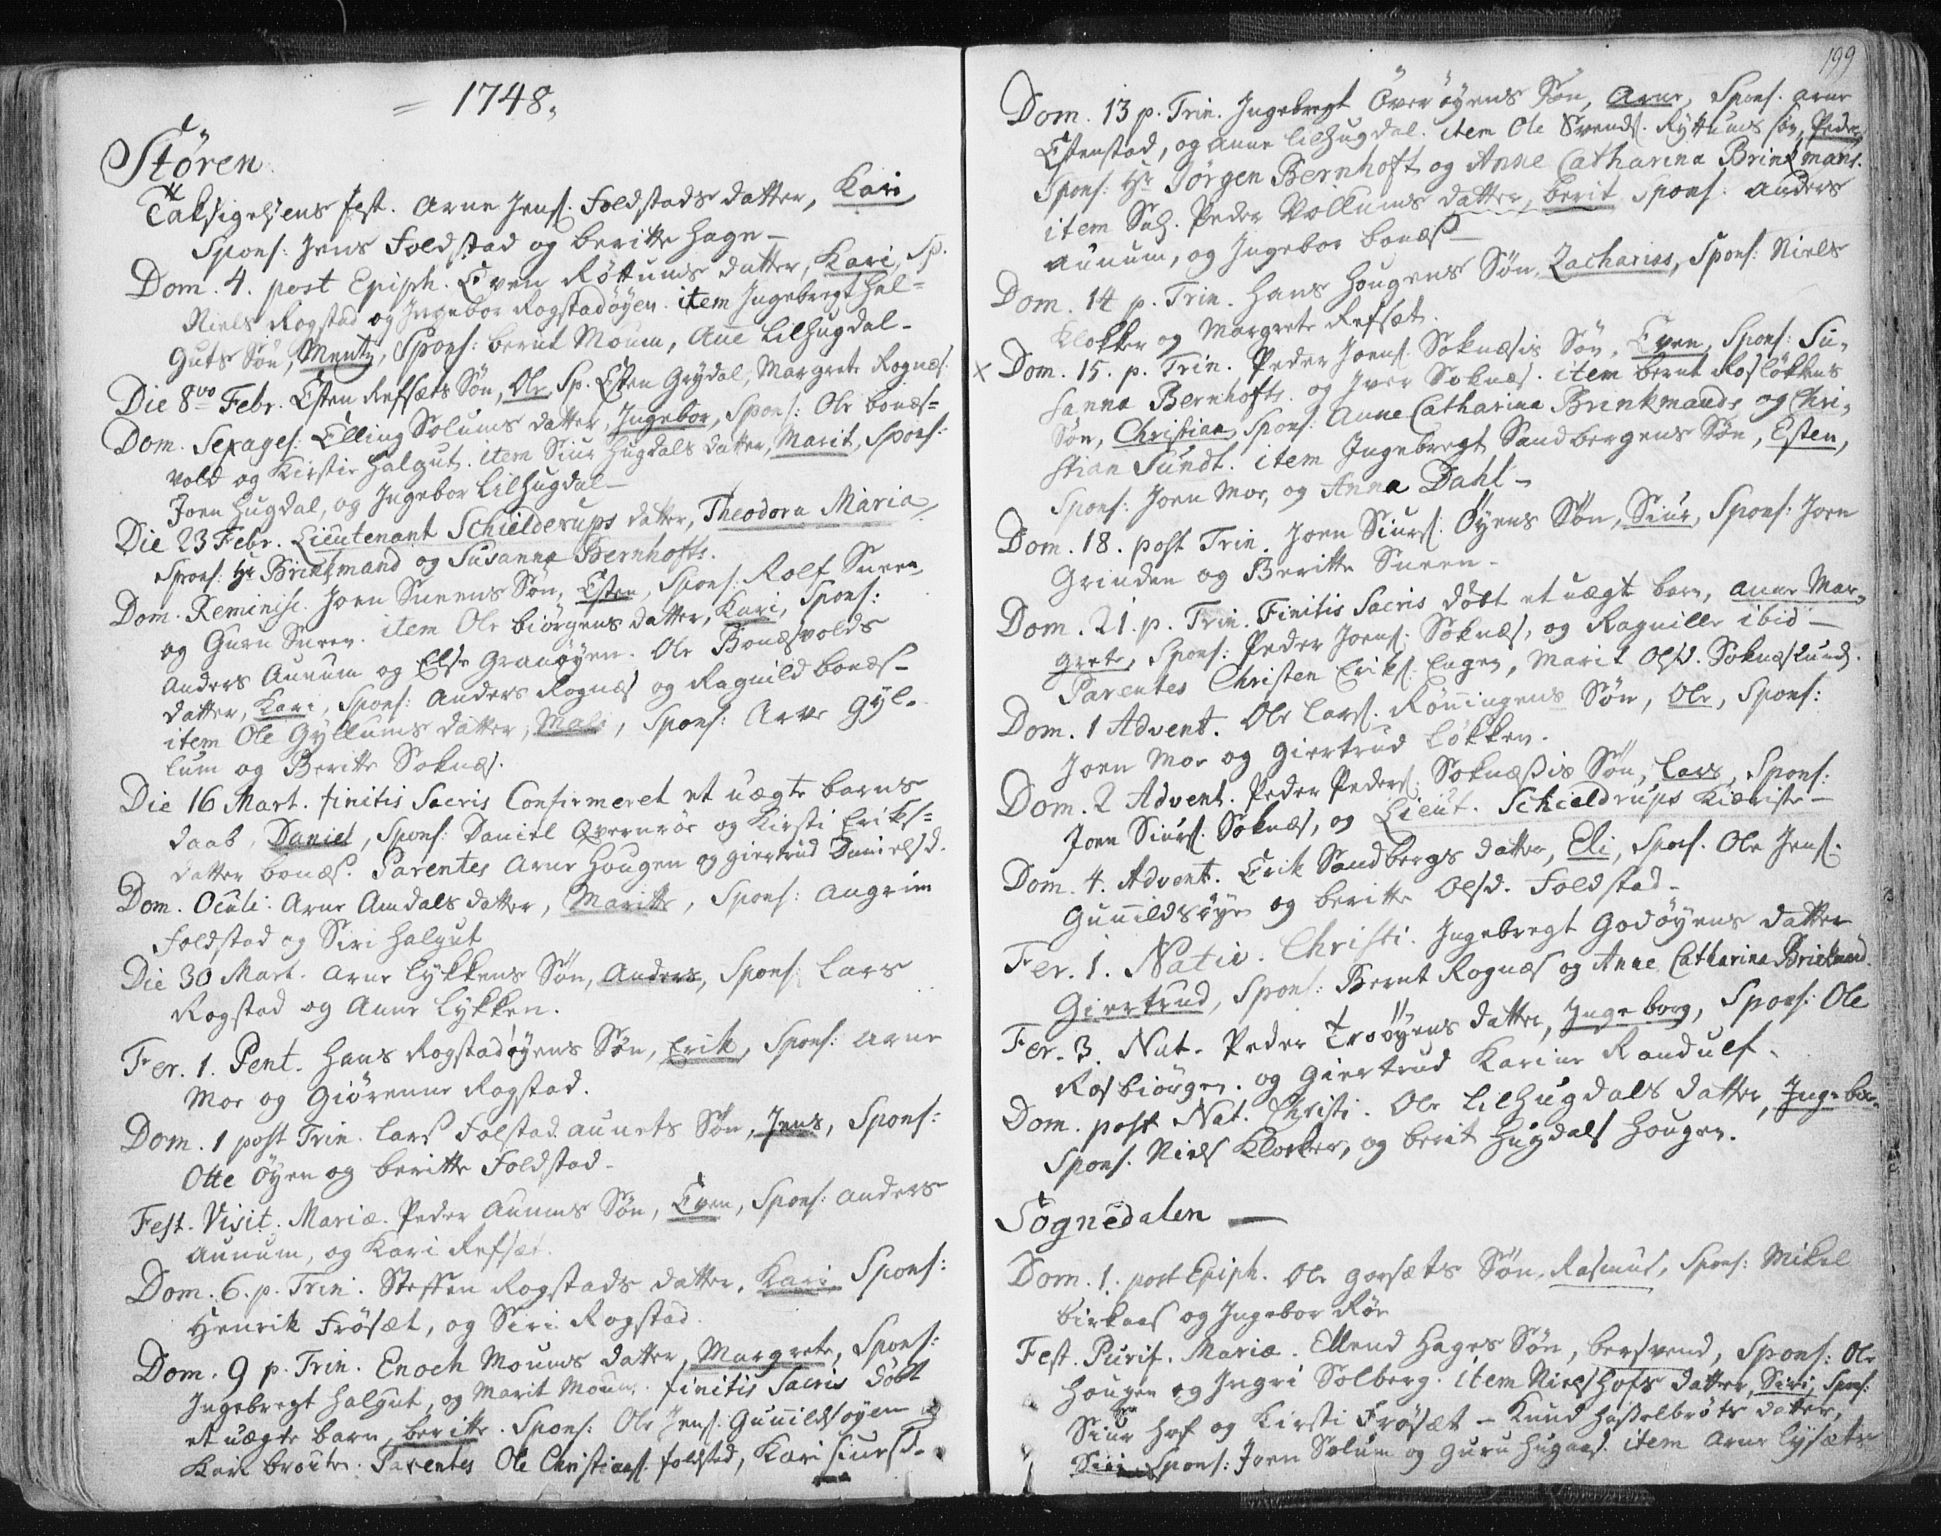 = 1748.
Stören
Taksigelsens fest. Arne Jens. Foldstads datter, Kari,
Spons: Jens Foldstad og Beritte Hage
Dom. 4. post Epiph. Even Röttums datter, Kari, Sp.
Niels Rogstad og Ingebor Rogstadöyen. item Ingebrigt Hal-
guts Sön, Mentz, Spons: bernt Moum, Ane Lilhugdal
Die 8vo Febr. Esten Refsæts Sön, Ole, Sp. Esten Grydal, Margrete Rognæs
Dom. Sexages: Elling Solums datter, Ingebor, Spons: Ole bonæs-
vold og Kirstie Halgut. item Siur Hugdals datter, Marit, Spons:
Joen Hugdal, og Ingebor Lilhugdal
Die 23 Febr. Lieutenant Schielderups datter, Theodora Maria
Spons: Hr Brinkmand og Susanna Bernhofts.
Dom. Reminisc. Joen Sneens Sön, Esten, Spons: Rolf Sneen,
og Guru Sneen. item Ole biörgens datter, Kari, Spons:
Anders Aunum og Else Granöyen. Ole Bonæsvolds
datter, Kari, Spons: Anders Rognæs og Ragnild bonæs-
item Ole Gyllums datter, Mali, Spons: Arve Gyl-
lum og Beritte Soknæs.
Die 16 Mart. finitis Sacris Confirmeret et uægte barns
daab, Daniel, Spons: Daniel Qvernröe og Kirsti Eriks-
datter bonæs. Parentes Arne Hougen og giertrud Danielsd.
Dom. Oculi. Arne Amdals datter, Maritte, Spons: Angrim
Foldstad og Siri Halgut
Die 30 Mart. Arne Lykkens Sön, Anders, Spons: Lars
Rogstad og Anne Lykken.
Fer. 1. Pent. Hans Rogstadöyens Sön, Erik, Spons: Arne
Moe og Giörenne Rogstad.
Dom. 1 post Trin. Lars Folstad aunets Sön, Jens, Spons:
Otte öyen og beritte Foldstad
Fest. Visit. Mariæ. Peder Aunums Sön, Even, Spons: Anders
Aunum, og Kari Refsæt.
Dom. 6. p. Trin. Steffen Rogstads datter, Kari Spons:
Henrik Frösæt, og Siri Rogstad.
Dom. 9 p. Trin. Enoch Moums datter, Margrete, Spons:
Ingebregt Halgut, og Marit Moum. finitis Sacris döbt
et uægte barn, beritte. Spons: Ole Jens. Gunnildsöyen og
Kari Parentes Ole Christians. folstad, Kari Siursd.
199
Dom. 13 p. Trin. Ingebregt Överöyens Sön, Arne, Spons. Arne
Estenstad, og Anne Lilhugdal. item Ole Svends. Ryttums sön, Peder,
Spons: Hr Jörgen Bernhoft og Anne Catharina Brinkmans.
item Sal. Peder Vollums datter, berit Spons: Anders
Aunum, og Ingebor bonæs
Dom. 14 p. Trin. Hans Hougens Sön, Zacharias, Spons: Niels
Klokker og Margrete Refsæt.
x Dom. 15. p. Trin. Peder Joens. Soknæsis Sön, Even, Spons: Su-
sanna Bernhofts. og Iver Soknæs. item bernt Roslökkens
Sön, Christian, Spons: Anne Catharina Brinkmands og Chri-
stian Sundt. item Ingebregt Sandbergens Sön, Esten,
Spons: Joen Moe, og Anna Dahl
Dom. 18. post Trin. Joen Siurs. Öyens Sön, Siur, Spons: Joen
Grinden og Beritte Sneen
Dom. 21. p. Trin. Finitis Sacris döbt et uægte barn, Anne Mar-
grete, Spons: Peder Joens. Soknæs, og Ragnille ibid
Parentes Christen Eriks. Engen, Marit Olsd. Soknæslund.
Dom. 1 Advent. Ole Lars. Rönningens Sön, Ole, Spons:
Joen Moe og Giertrud Lökken.
Dom. 2 Advent. Peder Peders. Soknæssis Sön, Lars, Spons:
Joen Siurs. Soknæs, og Lieut. Schieldrups Kiæriste
Dom. 4. Advent. Erik Sandbergs datter, Eli, Spons. Ole Jens.
Gunnildsöye og beritte Olsd. Foldstad
Fer. 1. Nativ. Christi. Ingebregt Godöyens datter
Giertrud, Spons: Bernt Rognæs og Anne Catharina Brinkmand.
Fer. 3. Nat. Peder Troöyens datter, Ingeborg, Spons: Ole
Rosbiörgen. og Giertrud Karine Randulf.
Dom. post Nat. Christi. Ole Lilhugdals datter, Ingebor,
Spons. Niels Klocker, og berit Hugdals Hougen.
Sognedalen
Dom. 1. post Epiph. Ole gorsæts Sön, Rasmus, Spons: Mikel
birkaas og Ingebor Röe
Fest. Purif. Mariæ. Ellend Hages Sön, bersvend, Spons: Ole
Hougen og Ingri Solberg. item Niels Hofs datter, Siri, Spons:
Siur Hof og Kirsti Frösæt - Knud Hasselbröts datter,
Siri Spons: Joen Solum og guru Hugaas. item Arne Lysæts